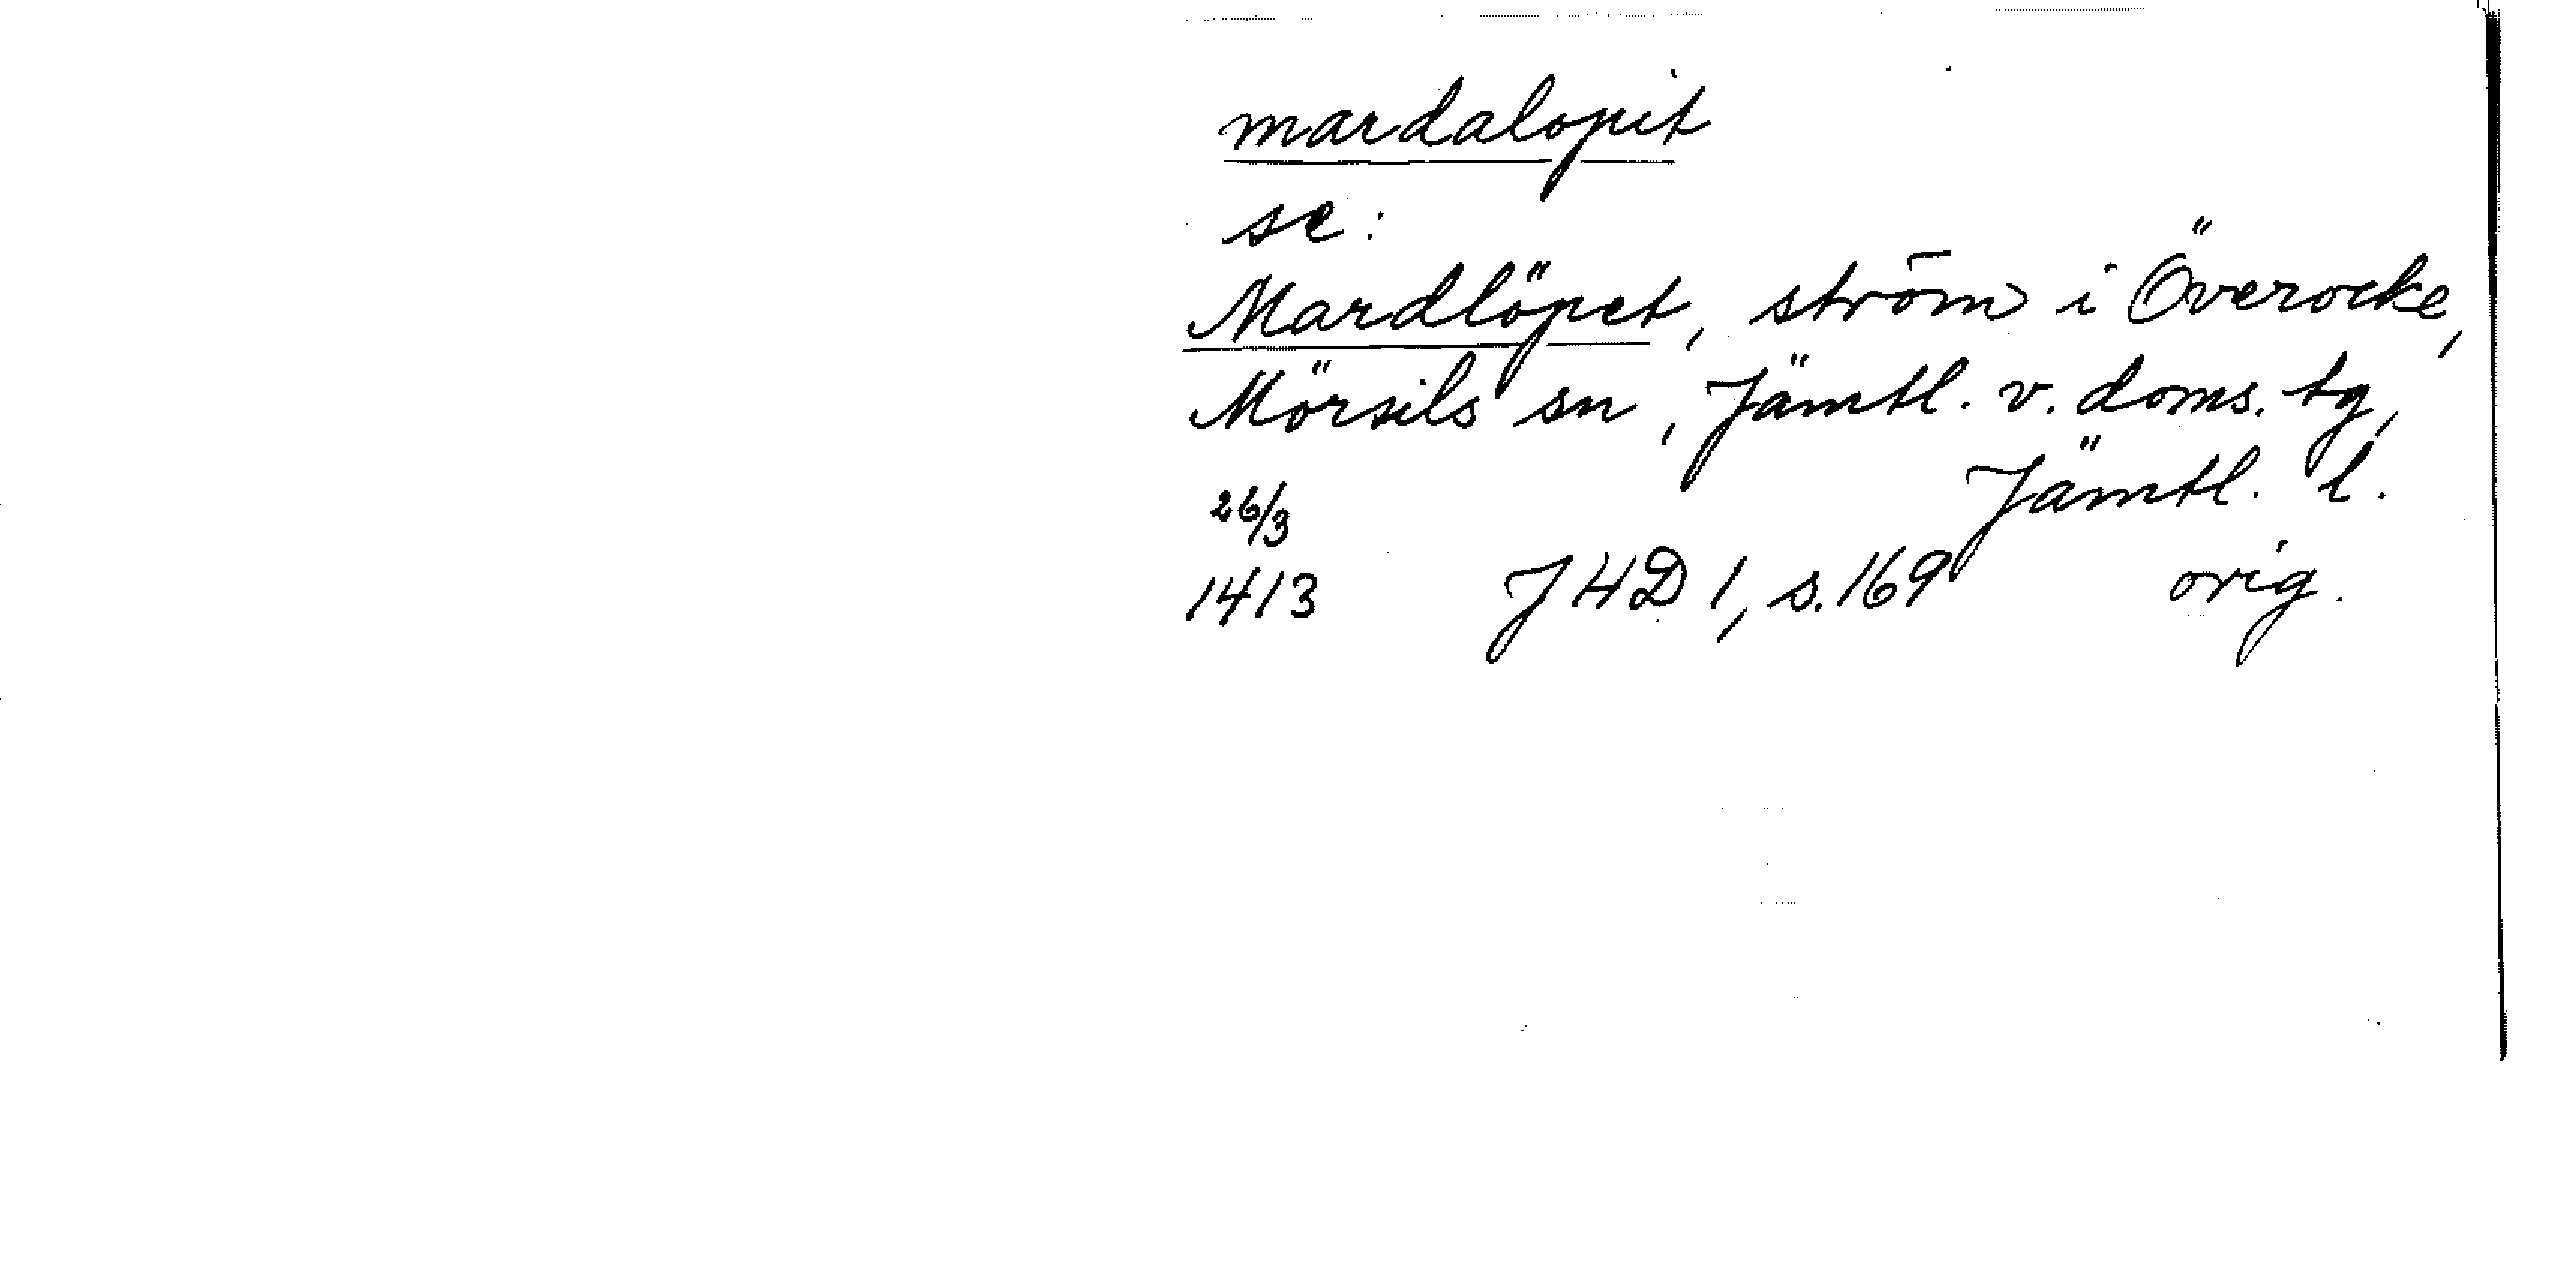 mardalopit
se:
Mardlöpet, ström i Överocke,
Mörsils sn, Jämtl. v. doms. tg,
Jämtl. l.
26/3
1413 JHD 1, s. 169 orig.